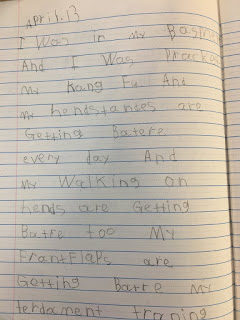 April.13
I Was in my Basm
And I Was Prackes
my Kang Fu And
my hendstantes are
Getting Batere
every day And
my Walking on
hends are Getting
Batre too My
FrantFlaps are
Getting Batre MY
terdament traning